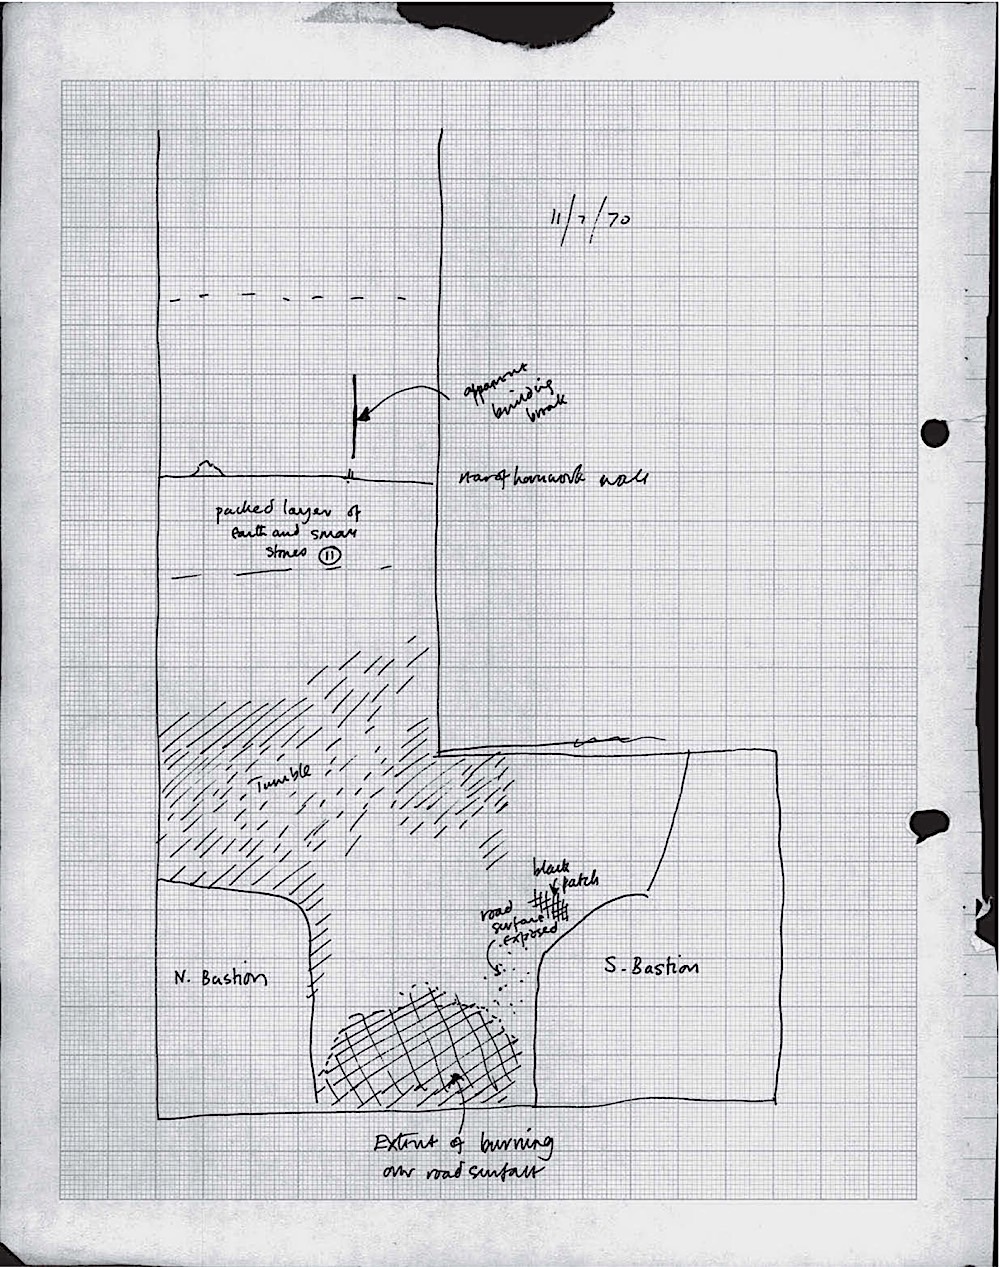 11/7/70
apparent
building
break
rear of hornwork wall
packed layer of
Earth and small
stones 11
Tumble
black
patch
road
surface
exposed
N. Bastion
S. Bastion
Extent of burning
over road surface